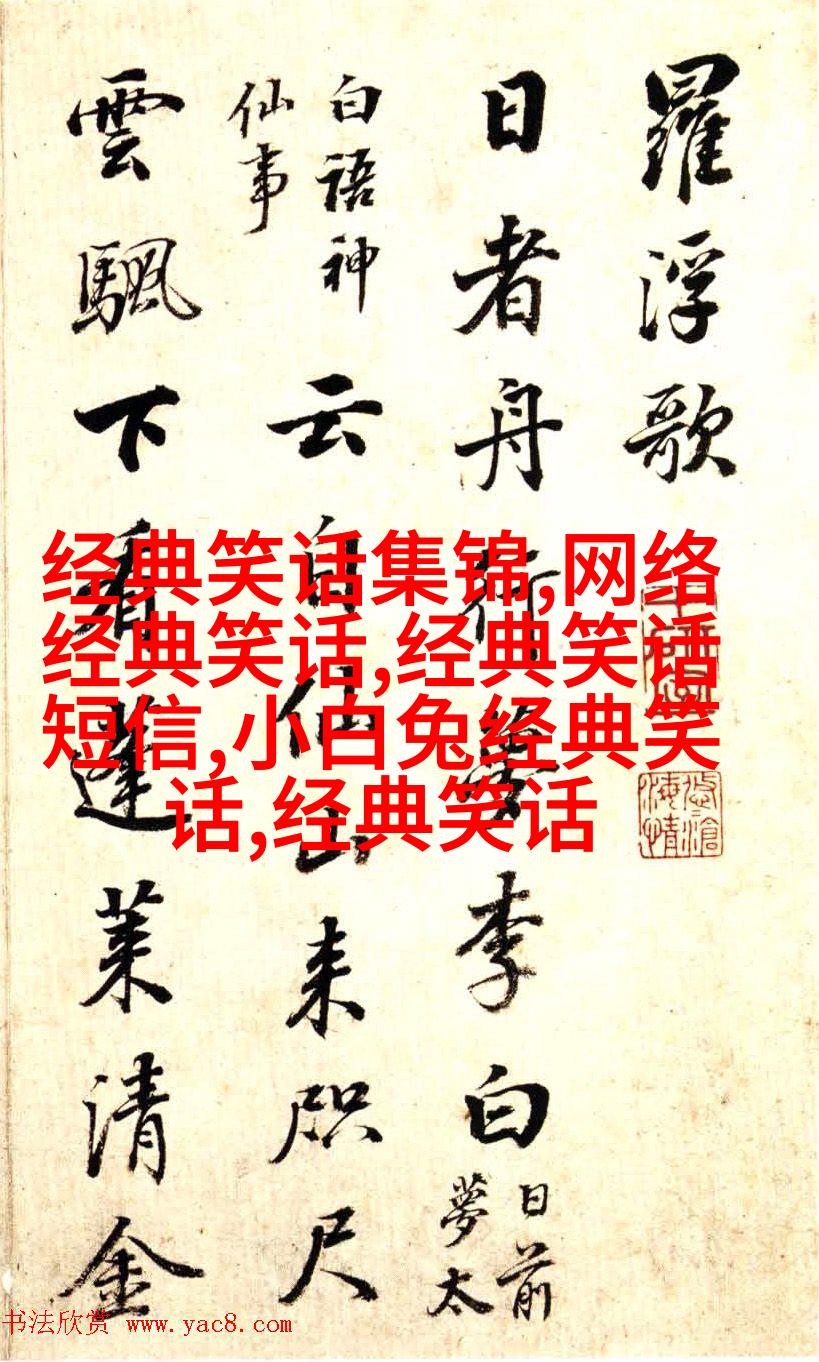 羅浮歌
日者舟行夢李白
日前
夢太
白語神
仙事
云自仙山来咫尺
雲颿下看蓬莱清金
经典笑话集锦,网络
经典笑话,经典笑话
短信,小白兔经典笑
话,经典笑话
书法欣赏 www.yac8.com